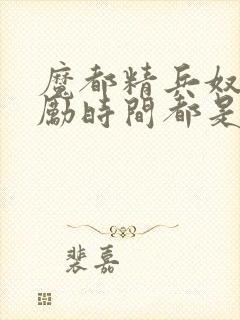 魔都精兵奴
勵時間都是
裴嘉